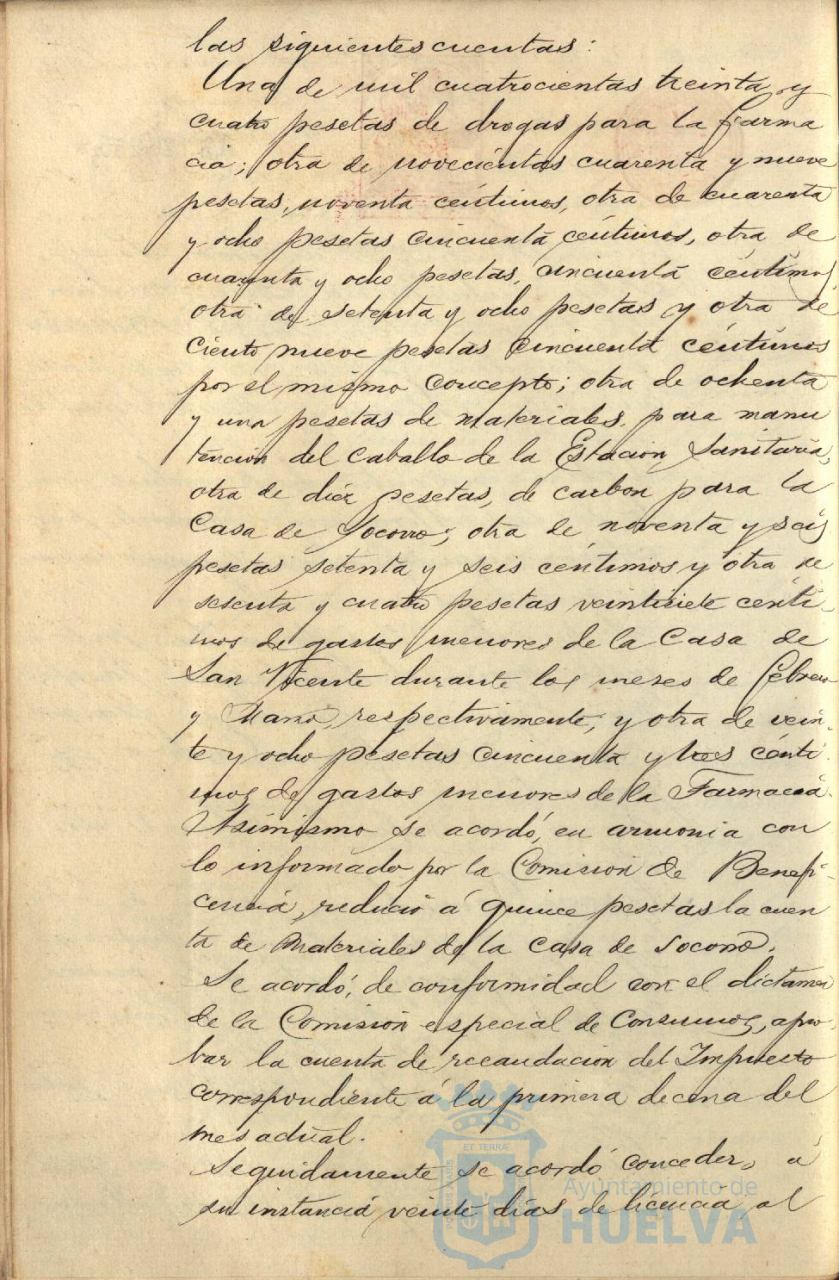 las siguientes cuentas:
Una de mil cuatrocientas treinta y
cuatro pesetas de drogas para la farma
cia; otra de novecientas cuarenta y nueve
pesetas, noventa céntimos, otra de cuarenta
y ocho pesetas cincuenta céntimos, otra de
cuarenta y ocho pesetas, cincuenta céntimos
otra de setenta y ocho pesetas y otra de
ciento nueve pesetas cincuenta céntimos
por el mismo concepto; otra de ochenta
y una pesetas de materiales para manu
tención del caballo de la Estación Sanitaria,
otra de diez pesetas, de carbon para la
Casa de Socorro; otra de noventa y seis
pesetas setenta y seis céntimos y otra de
sesenta y cuatro pesetas veintisiete cénti-
mos de gastos menores de la Casa de
San Vicente durante los meses de Febrero
y Marzo, respectivamente, y otra de vein-
te y ocho pesetas cincuenta y tres cénti-
mos de gastos menores de la Farmacia.
Asimismo se acordó, en armonia con
lo informado por la Comisión de Benefi-
cencia, reducir á quince pesetas la cuen
ta de Materiales de la Casa de Socorro.
Se acordó, de conformidad con el dictamen
de la Comisión especial de Consumos, apro-
bar la cuenta de recaudacion del Impuesto
correspondiente á la primera decena del
mes actual.
Seguidamente se acordó conceder, á
su instancia veinte dias de licencia al
ET TERRÆ
Ayuntamiento de
HUELVA